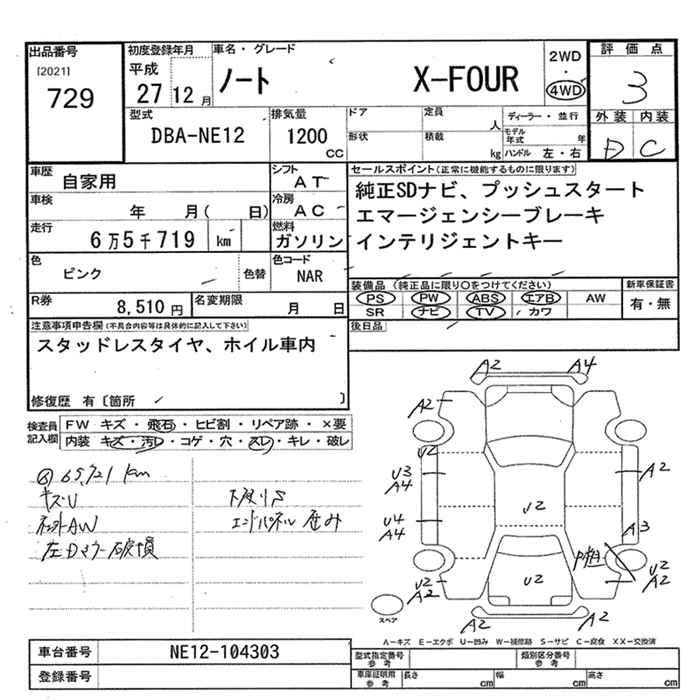 出品番号
[2021]
729
初度登録年月
平成
27 12 月
車名・グレード
ノート X-FOUR
2WD
・
4WD
評価点
3
外装 内装
D C
型式
DBA-NE12
排気量
1200
CC
ドア
形状
定員 人
積載 kg
ディーラー・並行
モデル年式 年
ハンドル 左・右
車歴
自家用
シフト
AT
車検
年 月( 日)
冷房
AC
走行
6万5千719 km
燃料
ガソリン
色
ピンク
色替
色コード
NAR
R券
8,510円
名変期限
月 日
セールスポイント(正常に機能するものに限ります)
純正SDナビ、プッシュスタート
エマージェンシーブレーキ
インテリジェントキー
装備品(純正品に限り○をつけてください)
PS PW ABS エアB AW
SR ナビ TV カワ
新車保証書
有・無
後日品
注意事項申告欄(不具合内容等は具体的に記入して下さい)
スタッドレスタイヤ、ホイル車内
修復歴 有〔箇所 〕
検査員記入欄
FW キズ・飛石・ヒビ割・リペア跡・×要
内装 キズ・汚レ・コゲ・穴・スレ・キレ・破レ
65,721 km
キズU
AW
左Dミラー破損
下廻りS
エンドパネル歪み
A2 A4
A2
U2
U3
A4
A2
U2
U4
A4
A3
U2
A2
U2
U2
A2
A2 A2
スペア
A-キズ E-エクボ U-凹み W-補修跡 S-サビ C-腐食 XX-交換済
車台番号
NE12-104303
登録番号
型式指定番号
参考
類別区分番号
参考
車庫証明用
参考
長さ cm
幅 cm
高さ cm